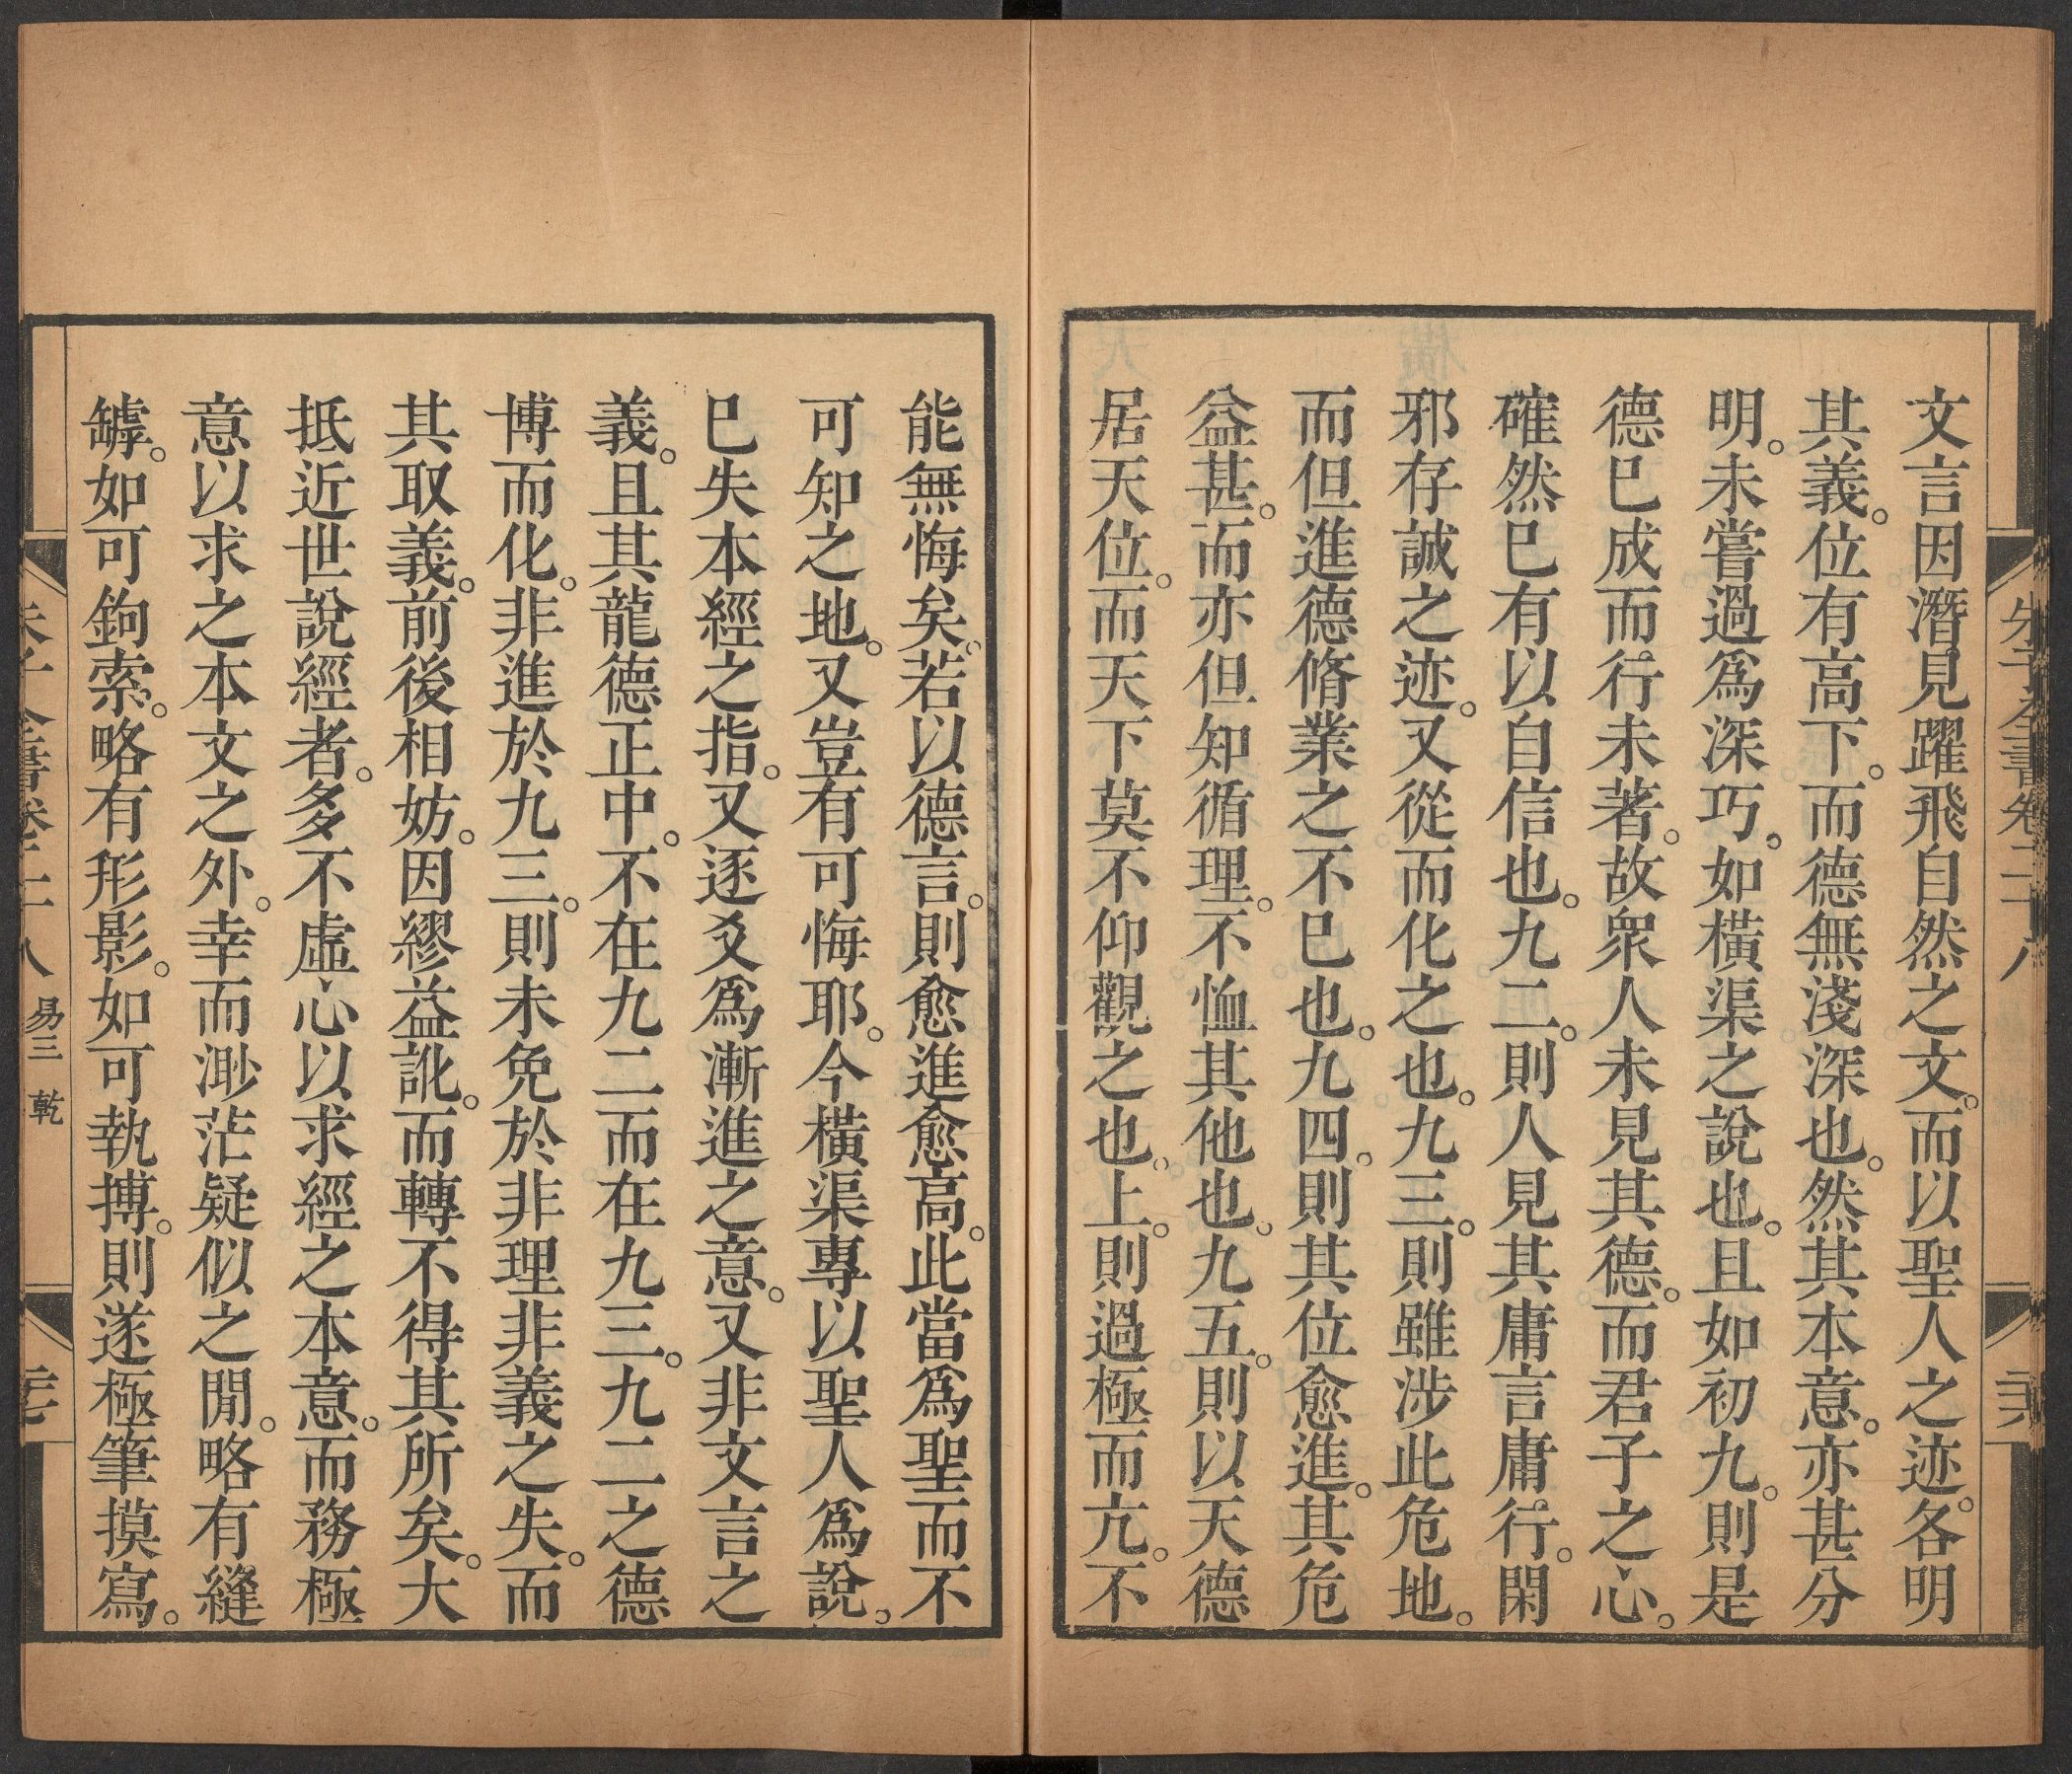 朱子全書卷二十八
文言因潛見躍飛自然之文。而以聖人之迹。各明
其義。位有高下。而德無淺深也。然其本意。亦甚分
明。未嘗過為深巧。如橫渠之說也。且如初九。則是
德已成而行未著。故衆人未見其德。而君子之心。
確然已有以自信也。九二。則人見其庸言庸行。閑
邪存誠之迹。又從而化之也。九三。則雖涉此危地。
而但進德脩業之不已也。九四。則其位愈進。其危
益甚。而亦但知循理。不恤其他也。九五。則以天德
居天位。而天下莫不仰觀之也。上。則過極而亢。不
能無悔矣。若以德言。則愈進愈高。此當爲聖而不
可知之地。又豈有可悔耶。今橫渠專以聖人爲說。
已失本經之指。又逐爻爲漸進之意。又非文言之
義。且其龍德正中。不在九二而在九三。九二之德
博而化。非進於九三。則未免於非理非義之失。而
其取義。前後相妨。因繆益訛。而轉不得其所矣。大
抵近世說經者。多不虛心以求經之本意。而務極
意以求之本文之外。幸而渺茫疑似之閒。略有縫
罅。如可鉤索。略有形影。如可執搏。則遂極筆摸寫。
朱子全書卷二十八 易三 乾